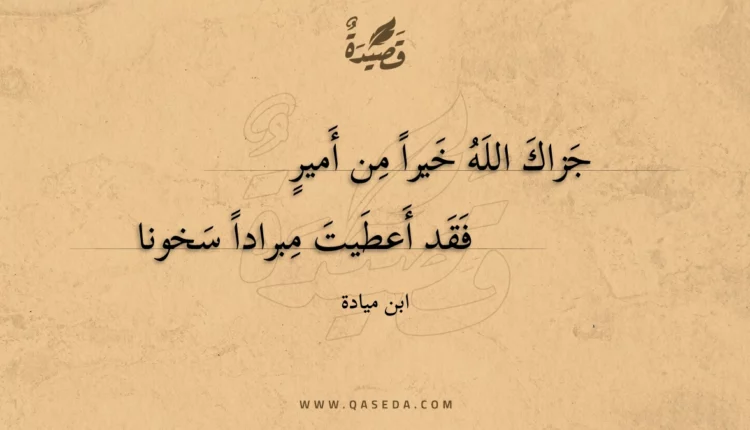 قَصِيْدَةٌ
جَزاكَ اللَهُ خَيراً مِن أَميرٍ
فَقَد أَعطَيتَ مِبراداً سَخونا
ابن ميادة
WWW.QASEDA.COM